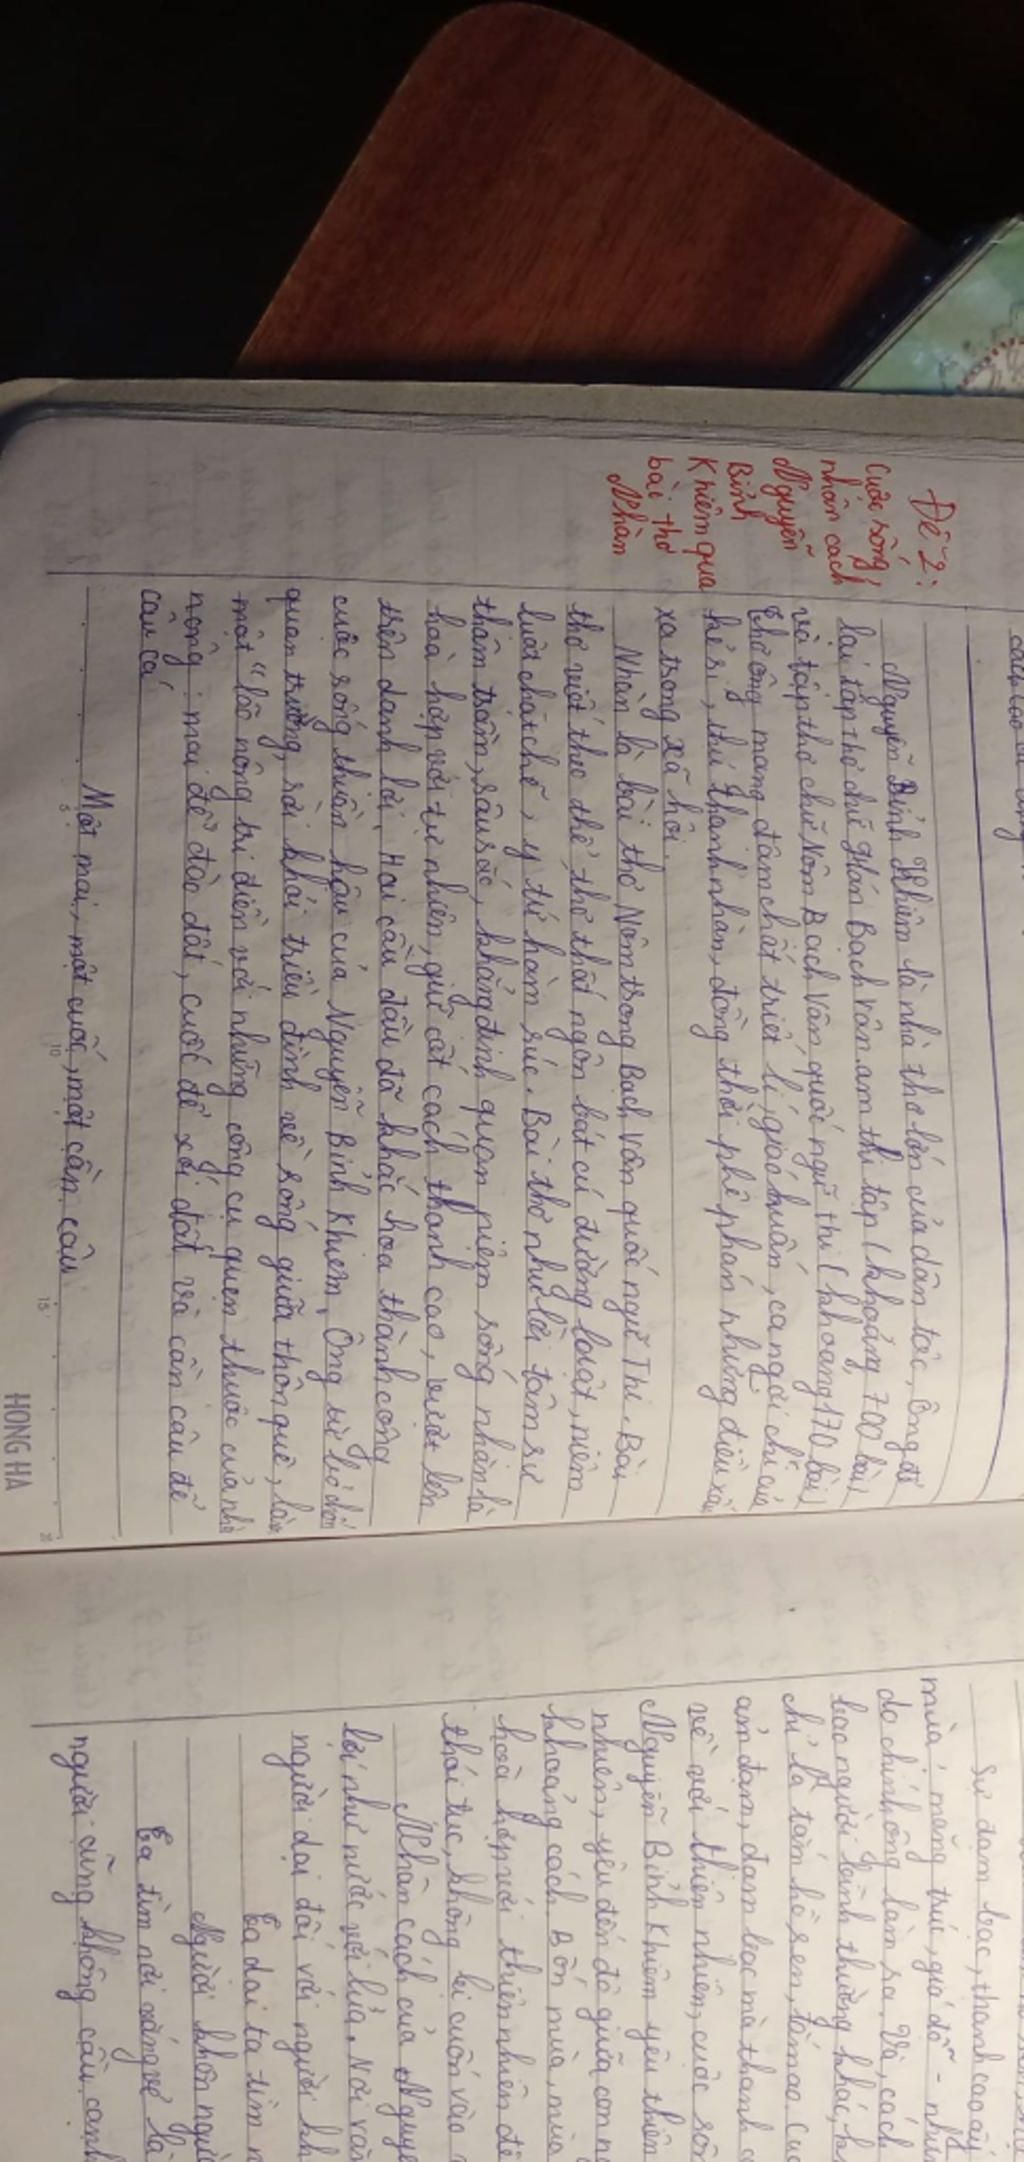 Đề 2:
Cuộc sống,
nhân cách
Nguyễn
Bỉnh
Khiêm qua
bài thơ
Nhàn
Nguyễn Bỉnh Khiêm là nhà thơ lớn của dân tộc, Ông để
lại tập thơ chữ Hán Bạch Vân am thi tập (khoảng 700 bài)
và tập thơ chữ Nôm Bạch Vân quốc ngữ thi (khoang 170 bài)
Thơ ông mang đậm chất triết lí, giáo huấn, ca ngợi chí của
kẻ sĩ, thú thanh nhàn, đồng thời phê phán những điều xấu
xa trong xã hội.
Nhàn là bài thơ Nôm trong Bạch Vân quốc ngữ Thi. Bài
thơ viết theo thể thơ thất ngôn bát cú đường luật, niêm
luật chặt chẽ, ý tứ hàm súc. Bài thơ như lời tâm sự
thâm trầm, sâu sắc, khẳng định quan niệm sống nhàn là
hoà hợp với tự nhiên, giữ cốt cách thanh cao, vượt lên
trên danh lợi. Hai câu đầu đã khắc hoạ thành công
cuộc sống thuần hậu của Nguyễn Bỉnh Khiêm. Ông từ bỏ chốn
quan trường, rời khỏi triều đình về sống giữa thôn quê, làm
một "lão nông tri điền với những công cụ quen thuộc của nhà
nông: mai để đào đất, cuốc để xới đất và cần câu để
câu cá
Một mai, một cuốc, một cần câu
5 10 15 20
HONG HA
Sự đạm bạc, thanh cao ấy
mùa, măng trúc, giá đỗ - nhữn
do chính ông làm ra. Và, cách
bao người bình thường khác,
chỉ là tắm hồ sen, tắm ao Cuộ
ảm đạm, đạm bạc mà thanh c
về với thiên nhiên, cuộc sốn
Nguyễn Bỉnh Khiêm yêu thiên
nhiên, yêu đến độ giữa con n
khoảng cách. Bốn mùa, mùa
hoà hợp với thiên nhiên để
thói tục, không bị cuốn vào
Nhân cách của Nguyễ
lợi như nước với lửa. Nói về
người dại đối với người kh
Ta dại ta tìm n
Người khôn ngườ
Ta tìm nơi vắng vẻ là
người cũng không cầu cạnh